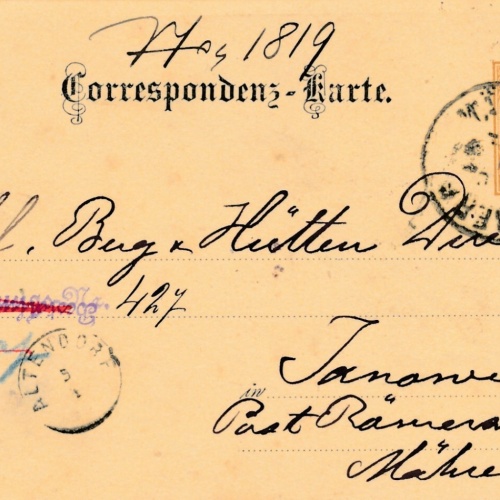 1819
Correspondenz-Karte.
Berg & Hütten Dire
427
ALTENDORF
5
1
Janowi
in
Post Römera
Mähre